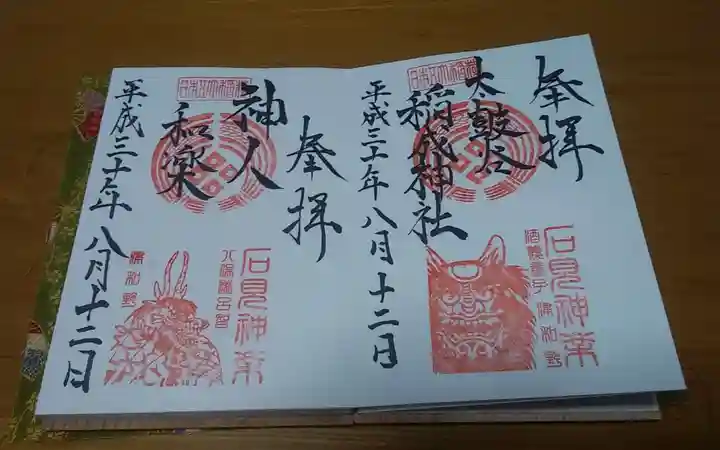 奉拝
太皷谷
稲成神社
平成三十年八月十二日
日本五大稲荷
石見神楽
酒呑童子
津和野
奉拝
神人
和楽
平成三十年八月十二日
日本五大稲荷
石見神楽
津和野